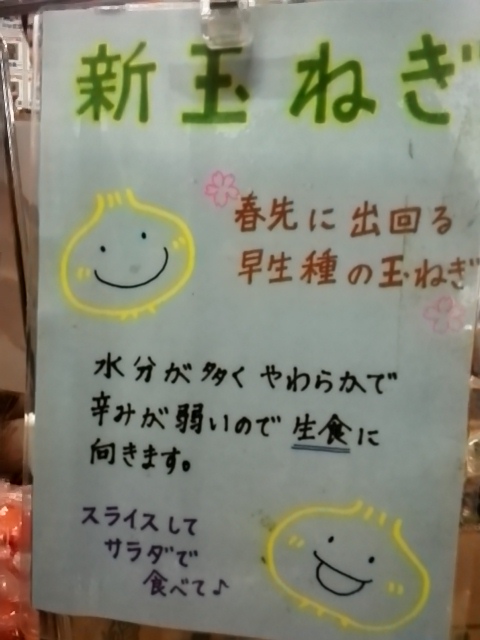 新玉ねぎ
春先に出回る
早生種の玉ねぎ
水分が多くやわらかで
辛みが弱いので生食に
向きます。
スライスして
サラダで
食べて♪